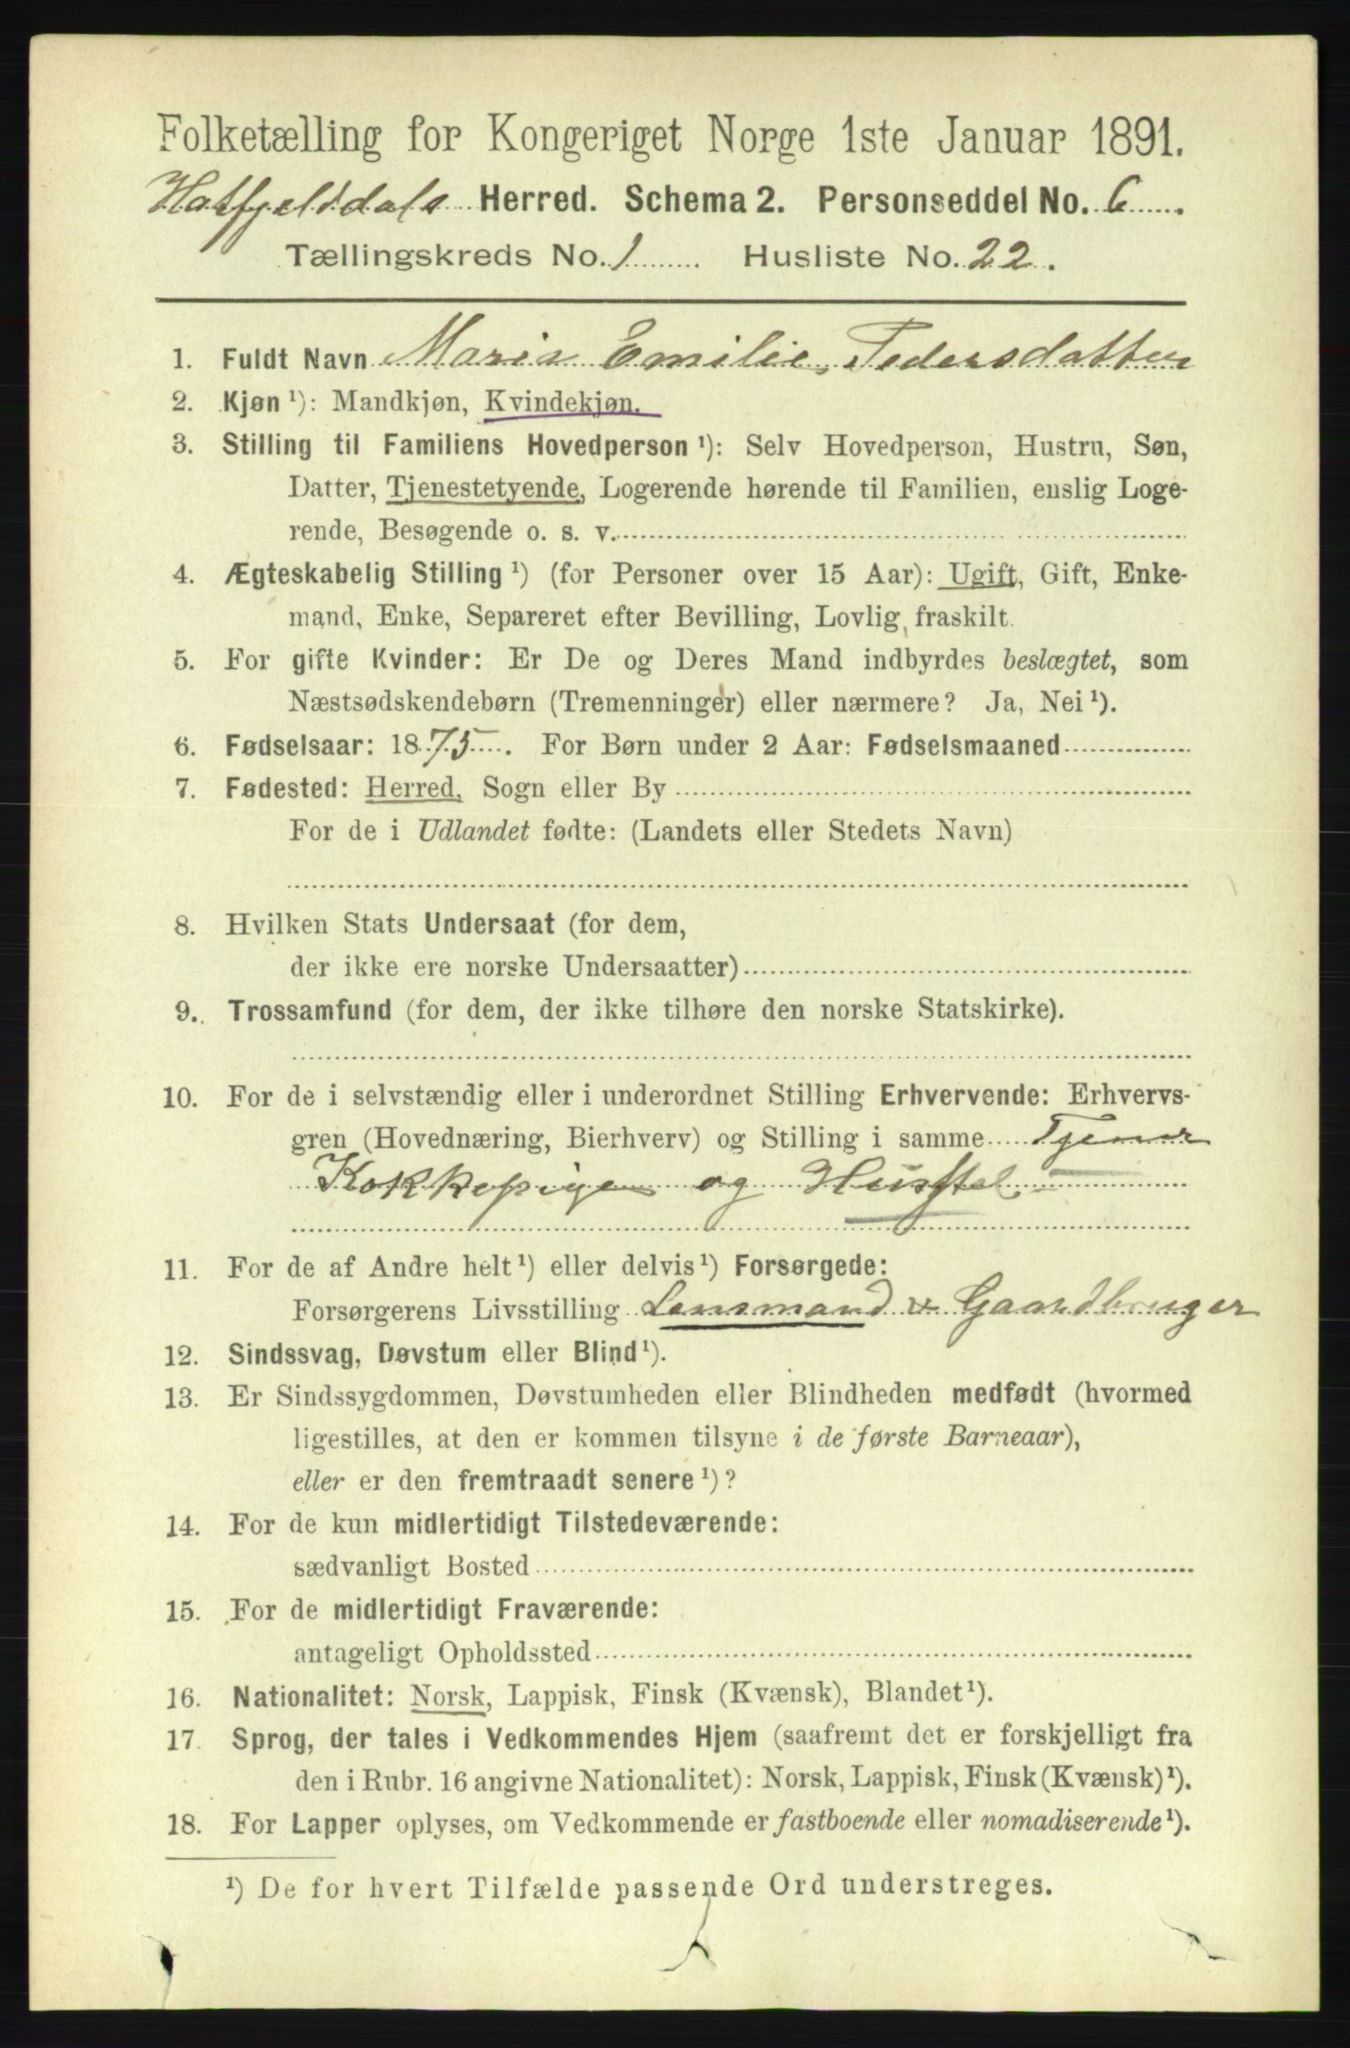 Folketælling for Kongeriget Norge 1ste Januar 1891.
Hatfjelddals Herred. Schema 2. Personseddel No. 6
Tællingskreds No. 1 Husliste No. 22.
1. Fuldt Navn Maria Emilie Pedersdatter
2. Kjøn ¹): Mandkjøn, Kvindekjøn.
3. Stilling til Familiens Hovedperson ¹): Selv Hovedperson, Hustru, Søn,
Datter, Tjenestetyende, Logerende hørende til Familien, enslig Loge-
rende, Besøgende o. s. v.
4. Ægteskabelig Stilling ¹) (for Personer over 15 Aar): Ugift, Gift, Enke-
mand, Enke, Separeret efter Bevilling, Lovlig fraskilt.
5. For gifte Kvinder: Er De og Deres Mand indbyrdes beslægtet, som
Næstsødskendebørn (Tremenninger) eller nærmere? Ja, Nei ¹).
6. Fødselsaar: 1875. For Børn under 2 Aar: Fødselsmaaned
7. Fødested: Herred, Sogn eller By
For de i Udlandet fødte: (Landets eller Stedets Navn)
8. Hvilken Stats Undersaat (for dem,
der ikke ere norske Undersaatter)
9. Trossamfund (for dem, der ikke tilhøre den norske Statskirke).
10. For de i selvstændig eller i underordnet Stilling Erhvervende: Erhvervs-
gren (Hovednæring, Bierhverv) og Stilling i samme Tjener
Kokkepige og Husstel
11. For de af Andre helt ¹) eller delvis ¹) Forsørgede:
Forsørgerens Livsstilling Lensmand & Gaardbruger
12. Sindssvag, Døvstum eller Blind ¹).
13. Er Sindssygdommen, Døvstumheden eller Blindheden medfødt (hvormed
ligestilles, at den er kommen tilsyne i de første Barneaar),
eller er den fremtraadt senere ¹)?
14. For de kun midlertidigt Tilstedeværende:
sædvanligt Bosted
15. For de midlertidigt Fraværende:
antageligt Opholdssted
16. Nationalitet: Norsk, Lappisk, Finsk (Kvænsk), Blandet ¹).
17. Sprog, der tales i Vedkommendes Hjem (saafremt det er forskjelligt fra
den i Rubr. 16 angivne Nationalitet): Norsk, Lappisk, Finsk (Kvænsk) ¹).
18. For Lapper oplyses, om Vedkommende er fastboende eller nomadiserende ¹).
¹) De for hvert Tilfælde passende Ord understreges.